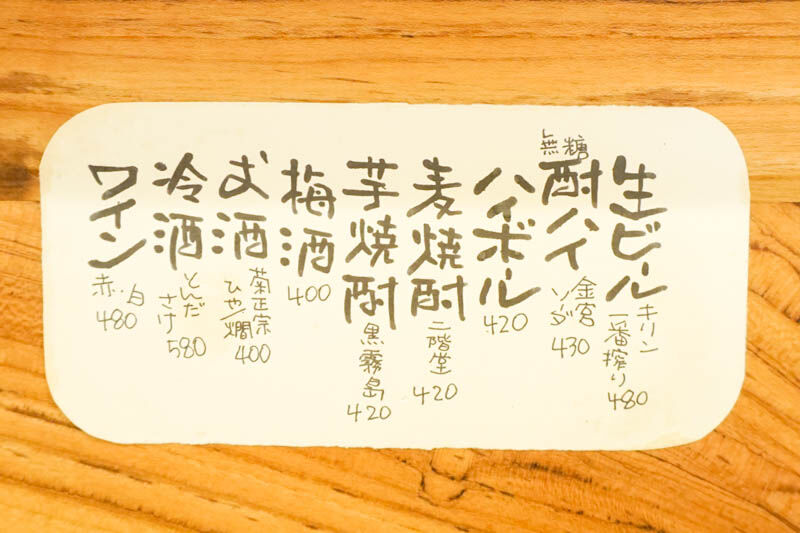 生ビール
キリン
一番搾り
480
無糖
酎ハイ
金宮
ソダ
430
ハイボール
420
麦焼酎
二階堂
420
芋焼酎
黒霧島
420
梅酒
400
お酒
菊正宗
ひや/燗
400
冷酒
とんだ
さけ
580
ワイン
赤.白
480